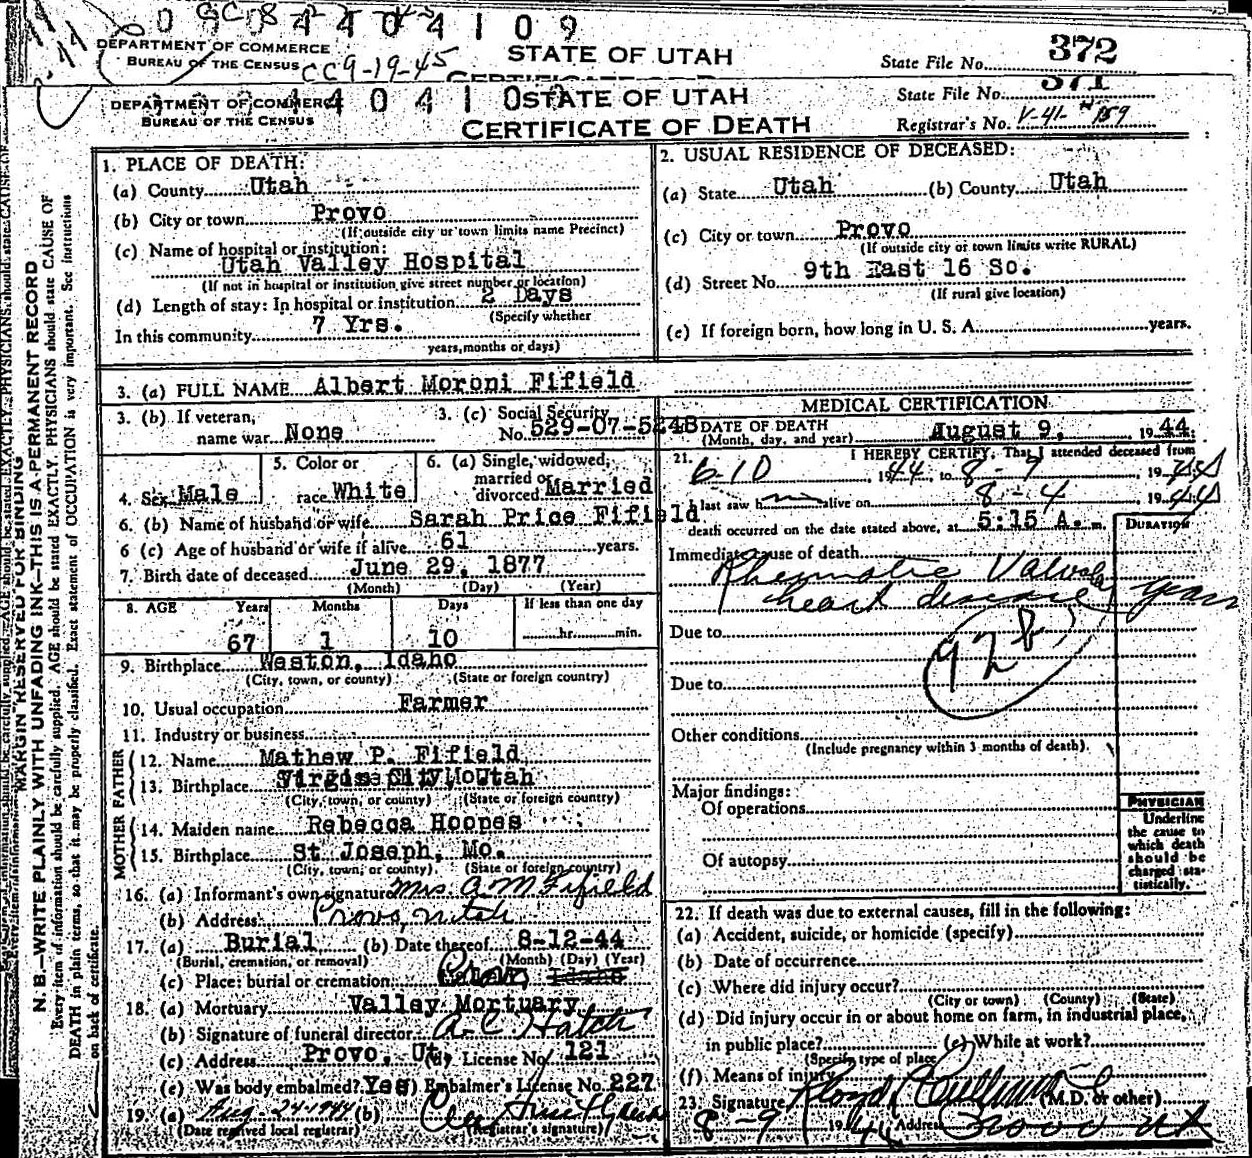 0 9 0 4 4 0 4 1 0 9
DEPARTMENT OF COMMERCE
BUREAU OF THE CENSUS CC9-19-45
STATE OF UTAH
State File No. 372
DEPARTMENT OF COMMERCE
BUREAU OF THE CENSUS
STATE OF UTAH
CERTIFICATE OF DEATH
State File No. 371
Registrar's No. V-41- 159
MARGIN RESERVED FOR BINDING
N. B.—WRITE PLAINLY WITH UNFADING INK—THIS IS A PERMANENT RECORD
Every item of information should be carefully supplied. AGE should be stated EXACTLY. PHYSICIANS should state CAUSE OF
DEATH in plain terms, so that it may be properly classified. Exact statement of OCCUPATION is very important. See instructions
on back of certificate.
1. PLACE OF DEATH:
(a) County Utah
(b) City or town Provo
(If outside city or town limits name Precinct)
(c) Name of hospital or institution:
Utah Valley Hospital
(If not in hospital or institution give street number or location)
(d) Length of stay: In hospital or institution 2 Days
(Specify whether
In this community 7 Yrs.
years, months or days)
2. USUAL RESIDENCE OF DECEASED:
(a) State Utah (b) County Utah
(c) City or town Provo
(If outside city or town limits write RURAL)
(d) Street No. 9th East 16 So.
(If rural give location)
(e) If foreign born, how long in U. S. A. years.
3. (a) FULL NAME Albert Moroni Fifield
3. (b) If veteran,
name war None
3. (c) Social Security
No. 529-07-5248
4. Sex Male
5. Color or
race White
6. (a) Single, widowed,
married or
divorced Married
6. (b) Name of husband or wife Sarah Price Fifield
6 (c) Age of husband or wife if alive 61 years.
7. Birth date of deceased June 29, 1877
(Month) (Day) (Year)
8. AGE Years Months Days If less than one day
67 1 10 hr. min.
9. Birthplace Weston, Idaho
(City, town, or county) (State or foreign country)
10. Usual occupation Farmer
11. Industry or business
FATHER
12. Name Mathew P. Fifield
13. Birthplace Utah
(City, town, or county) (State or foreign country)
MOTHER
14. Maiden name Rebecca Hoopes
15. Birthplace St Joseph, Mo.
(City, town, or county) (State or foreign country)
16. (a) Informant's own signature Mrs. A M Fifield
(b) Address Provo, Utah
17. (a) Burial (b) Date thereof 8-12-44
(Burial, cremation, or removal) (Month) (Day) (Year)
(c) Place: burial or cremation Idaho
18. (a) Mortuary Valley Mortuary
(b) Signature of funeral director A. C. Hatch
(c) Address Provo, Ut. (d) License No. 121
(e) Was body embalmed? Yes (f) Embalmer's License No. 227
19. (a) Aug 24-1944 (b)
(Date received local registrar) (Registrar's signature)
MEDICAL CERTIFICATION
20. DATE OF DEATH
(Month, day, and year) August 9, 1944
21. I HEREBY CERTIFY, That I attended deceased from
6-10, 1944, to 8-9, 1944
I last saw h m alive on 8-4, 1944
death occurred on the date stated above, at 5:15 A. m.
DURATION
Immediate cause of death
Rheumatic Valvular
heart disease years
Due to
92b
Due to
Other conditions
(Include pregnancy within 3 months of death).
Major findings:
Of operations
Of autopsy
PHYSICIAN
Underline
the cause to
which death
should be
charged sta-
tistically.
22. If death was due to external causes, fill in the following:
(a) Accident, suicide, or homicide (specify)
(b) Date of occurrence
(c) Where did injury occur?
(City or town) (County) (State)
(d) Did injury occur in or about home on farm, in industrial place,
in public place? (e) While at work?
(Specify type of place)
(f) Means of injury
23. Signature (M.D. or other)
8-9 1944 Address Provo Ut